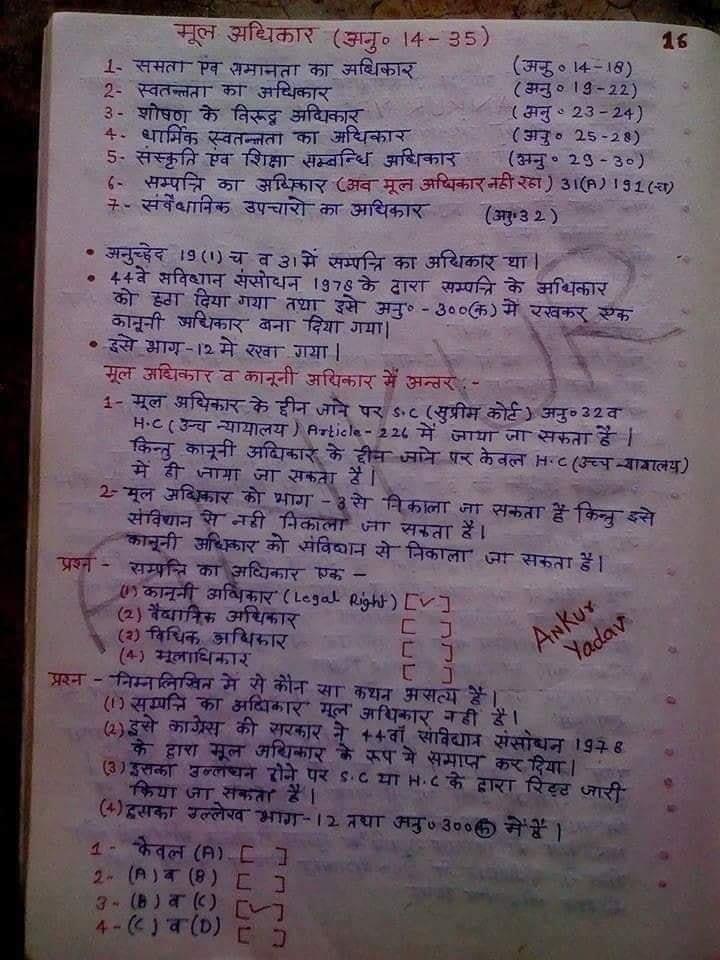 मूल अधिकार (अनु० 14-35)
16
1- समता एवं समानता का अधिकार (अनु० 14-18)
2- स्वतन्त्रता का अधिकार (अनु० 19-22)
3- शोषण के विरूद्ध अधिकार (अनु० 23-24)
4- धार्मिक स्वतन्त्रता का अधिकार (अनु० 25-28)
5- संस्कृति एवं शिक्षा सम्बन्धि अधिकार (अनु० 29-30)
6- सम्पत्ति का अधिकार (अब मूल अधिकार नही रहा) 31(A) 191(च)
7- संवैधानिक उपचारो का अधिकार (अनु०32)
• अनुच्छेद 19(1) च व 31 में सम्पत्ति का अधिकार था।
• 44वे संविधान संसोधन 1978 के द्वारा सम्पत्ति के अधिकार
को हटा दिया गया तथा इसे अनु० - 300(क) में रखकर एक
कानूनी अधिकार बना दिया गया।
• इसे भाग-12 मे रखा गया।
मूल अधिकार व कानूनी अधिकार में अन्तर :-
1- मूल अधिकार के छीन जाने पर S.C (सुप्रीम कोर्ट) अनु०32 व
H.C (उच्च न्यायालय) Article-226 में जाया जा सकता है।
किन्तु कानूनी अधिकार के छीन जाने पर केवल H.C (उच्च न्यायालय)
में ही जाया जा सकता है।
2- मूल अधिकार को भाग-3 से निकाला जा सकता है किन्तु इसे
संविधान से नही निकाला जा सकता है।
कानूनी अधिकार को संविधान से निकाला जा सकता है।
प्रश्न - सम्पत्ति का अधिकार एक -
(1) कानूनी अधिकार (Legal Right) [✓]
(2) वैधानिक अधिकार [ ]
(3) विधिक अधिकार [ ]
(4) मूलाधिकार [ ]
ANKUR
Ankur
Yadav
प्रश्न - निम्नलिखित मे से कौन सा कथन असत्य है।
(1) सम्पत्ति का अधिकार मूल अधिकार नही है।
(2) इसे कांग्रेस की सरकार ने 44वाँ संविधान संसोधन 1978
के द्वारा मूल अधिकार के रूप मे समाप्त कर दिया।
(3) इसका उल्लघन होने पर S.C या H.C के द्वारा रिट जारी
किया जा सकता है।
(4) इसका उल्लेख भाग-12 तथा अनु०300(क) में है।
1- केवल (A) [ ]
2- (A) व (B) [ ]
3- (B) व (C) [✓]
4- (C) व (D) [ ]